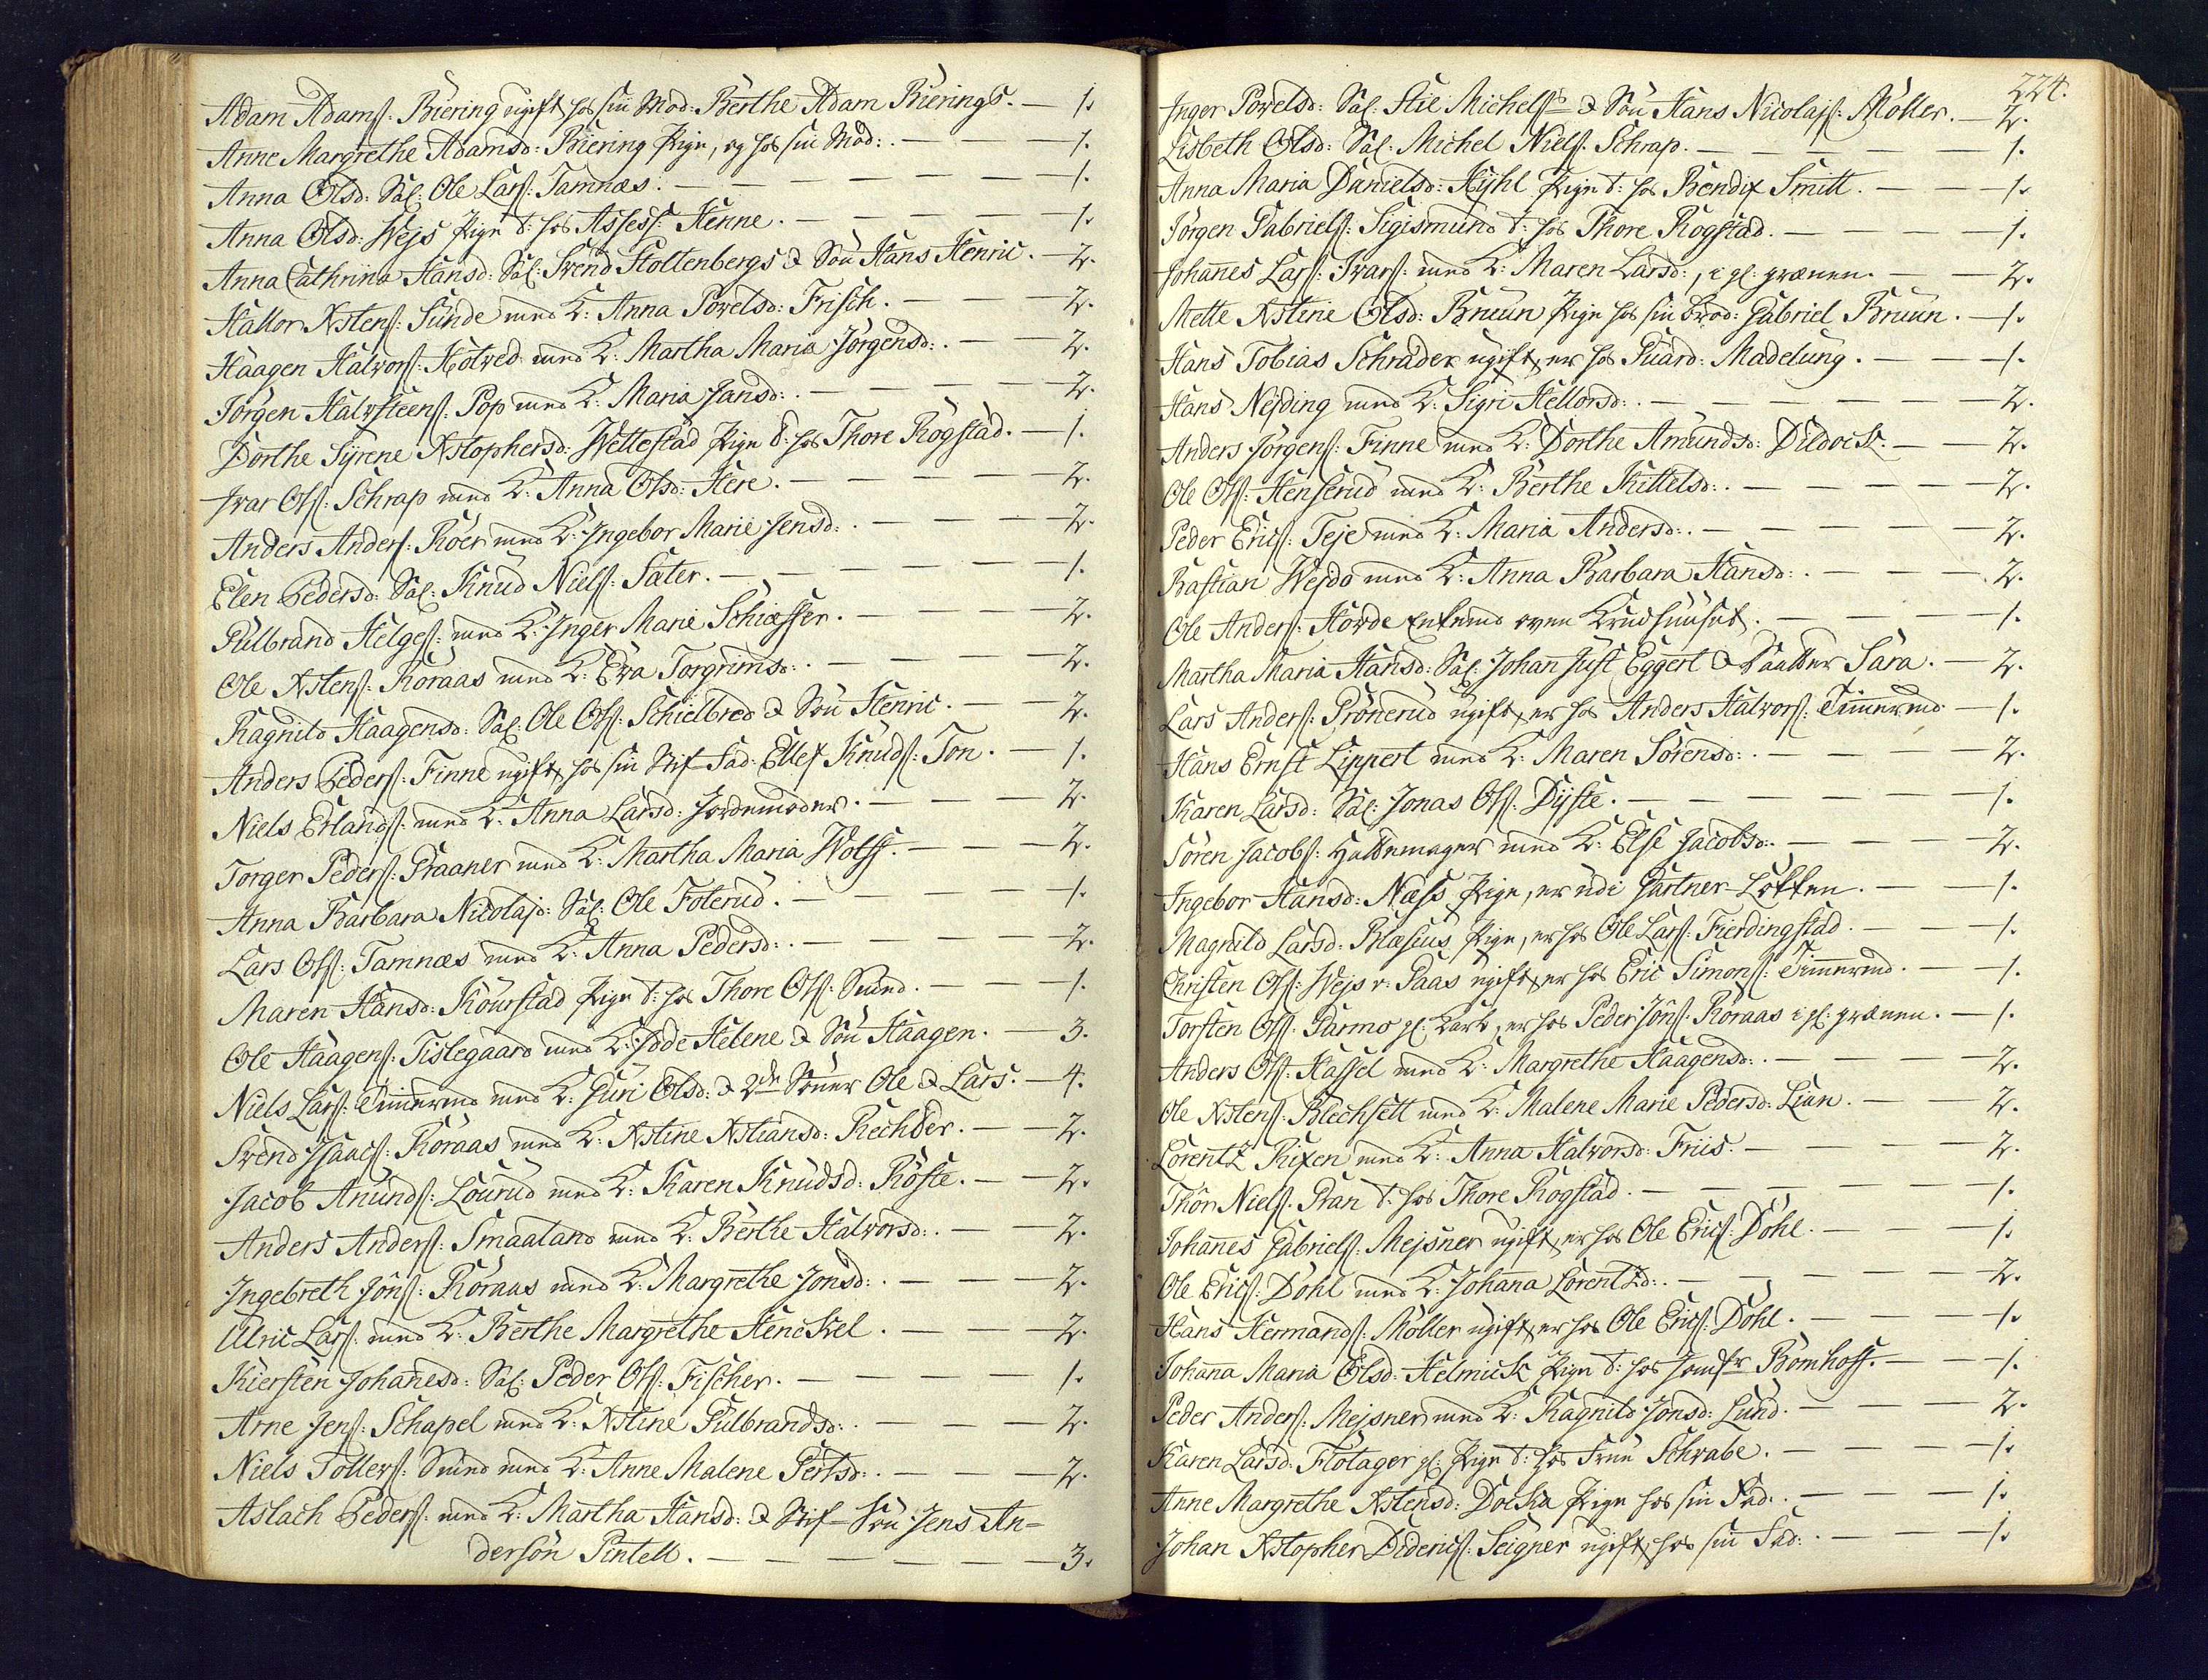 Adam Adamſ: Biering ugift hos sin Mod: Berthe Adam Bierings. — 1.
Anne Margrethe Adamsd: Biering Pige, og hos sin Mod: . — — — 1.
Anna Olsd: Sal: Ole Larſ: Tamnæs. — — — — — 1.
Anna Olsd: Wejs Pige t: hos Assess: Henne. — — — — 1.
Anna Cathrina Hansd: Sal: Svend Stoltenbergs & Søn Hans Henric. — 2.
Hallor Xstenſ: Sunde med K: Anna Povelsd: Frisch. — — — 2.
Haagen Halvorſ: Holved med K: Martha Maria Jørgensd: . — — 2.
Jørgen Halvsteenſ: Pop med K: Maria Jansd: . — — — — 2.
Dorthe Syrene Xstophersd: Wettestad Pige t: hos Thore Rogstad. — 1.
Ivar Olſ: Schrap med K: Anna Olsd: Here. — — — — 2.
Anders Anderſ: Röer med K: Ingebor Marie Jensd: . — — — 2.
Elen Pedersd: Sal: Knud Nielſ: Sater. — — — — — 1.
Gulbrand Helgeſ: med K: Inger Marie Schiøffer. — — — 2.
Ole Xstenſ: Röraas med K: Eva Torgrimsd: . — — — — 2.
Ragnild Haagensd: Sal: Ole Olſ: Schielbred & Søn Henric. — — 2.
Anders Pederſ: Finne ugift, hos sin Stif-Fad: Ellef Knudſ: Ton. — 1.
Niels Erlandſ: med K: Anna Larsd: Jordemoder. — — — 2.
Torger Pederſ: Graaner med K: Martha Maria Wolff. — — — 2.
Anna Barbara Nicolajd: Sal: Ole Foterud. — — — — 1.
Lars Olſ: Tamnæs med K: Anna Pedersd: . — — — — 2.
Maren Hansd: Kourstad Pige t: hos Thore Olſ: Smed. — — — 1.
Ole Haagenſ: Tislegaard med K: Hede Helene & Søn Haagen. — 3.
Niels Larſ: Timermd med K: Guri Olsd: & 2de Sønner Ole & Lars. — 4.
Svend Isaacſ: Röraas med K: Xstine Xstiansd: Rechder. — — 2.
Jacob Anundſ: Lourud med K: Karen Knudsd: Röste. — — 2.
Anders Anderſ: Smaaland med K: Berthe Halvorsd: . — — 2.
Ingebreth Jönſ: Röraas med K: Margrethe Jonsd: . — — — 2.
Ulric Larſ: med K: Berthe Margrethe Henckel. — — — 2.
Kiersten Johanesd: Sal: Peder Olſ: Fischer. — — — — 1.
Arne Jenſ: Schapel med K: Xstine Gulbrandsd: . — — — 2.
Niels Tollerſ: Smed med K: Anne Malene Gertsd: . — — — 2.
Aslach Pederſ: med K: Martha Hansd: & Stif-Søn Jens An=
dersön Pintell. — — — — — — 3.
224.
Inger Povelsd: Sal: Stie Michelſ & Søn Hans Nicolajſ: Möller. — 2.
Lisbeth Olsd: Sal: Michel Nielſ: Schrap. — — — — — 1.
Anna Maria Danielsd: Kyhl Pige t: hos Bendix Smitt. — — 1.
Jörgen Gabrielſ: Sigismund t: hos Thore Rogstad. — — — 1.
Johanes Larſ: Ivarſ: med K: Maren Larsd: , i gl: grænen. — — 2.
Mette Xstine Olsd: Bruun Pige hos sin Brod: Gabriel Bruun. — 1.
Hans Tobias Schrader ugift, er hos Guard: Madelung. — — 1.
Hans Nejding med K: Sigri Hellorsd: . — — — — — 2.
Anders Jörgenſ: Finne med K: Dorthe Amundsd: Dildock. — — 2.
Ole Olſ: Henserud med K: Berthe Kittelsd: . — — — — 2.
Peder Ericſ: Teje med K: Maria Andersd: . — — — — 2.
Bastian Wejda med K: Anna Barbara Hansd: . — — — 2.
Ole Anderſ: Hovde Enkemd oven Krudhuuset. — — — — 1.
Martha Maria Hansd: Sal: Johan Just Eggert & Daatter Sara. — 2.
Lars Anderſ: Grönerud ugift, er hos Anders Halvorſ: Timermd. — 1.
Hans Ernst Lippert med K: Maren Sörensd: . — — — — 2.
Karen Larsd: Sal: Jonas Olſ: Dyste. — — — — — 1.
Sören Jacobſ: Hattemager med K: Else Jacobsd: . — — — 2.
Ingebor Hansd: Næss Pige, er udi Gartner-Løkken. — — — 1.
Magnild Larsd: Blæsius Pige, er hos Ole Larſ: Fierdingstad. — — 1.
Christen Olſ: Wejs v: Gaas ugift, er hos Eric Simonſ: Timermd. — 1.
Torsten Olſ: Garmo gl: Karl, er hos Peder Jönſ: Röraas i gl: grænen. — 1.
Anders Olſ: Hassel med K: Margrethe Haagensd: . — — — 2.
Ole Xstenſ: Blechsett med K: Malene Marie Pedersd: Lian. — — 2.
Lorentz Rixen med K: Anna Halvorsd: Friis. — — — — 2.
Thör Nielſ: Bran t: hos Thore Rogstad. — — — — — 1.
Johanes Gabrielſ: Mejsner ugift, er hos Ole Ericſ: Dohl. — — 1.
Ole Ericſ: Dohl med K: Johana Lorentzd: . — — — — 2.
Hans Hermandſ: Möller ugift, er hos Ole Ericſ: Dohl. — — — 1.
Johana Maria Olsd: Helmick Pige t: hos Jomfr Bomhoff. — — 1.
Peder Anderſ: Mejsner med K: Ragnild Jonsd: Lund. — — — 2.
Karen Larsd: Flotager gl: Pige t: hos Frue Schrabe. — — — 1.
Anne Margrethe Xstensd: Docka Pige hos sin Fad: . — — — 1.
Johan Xstopher Didericſ: Seigner ugift, hos sin Fad: . — — — 1.